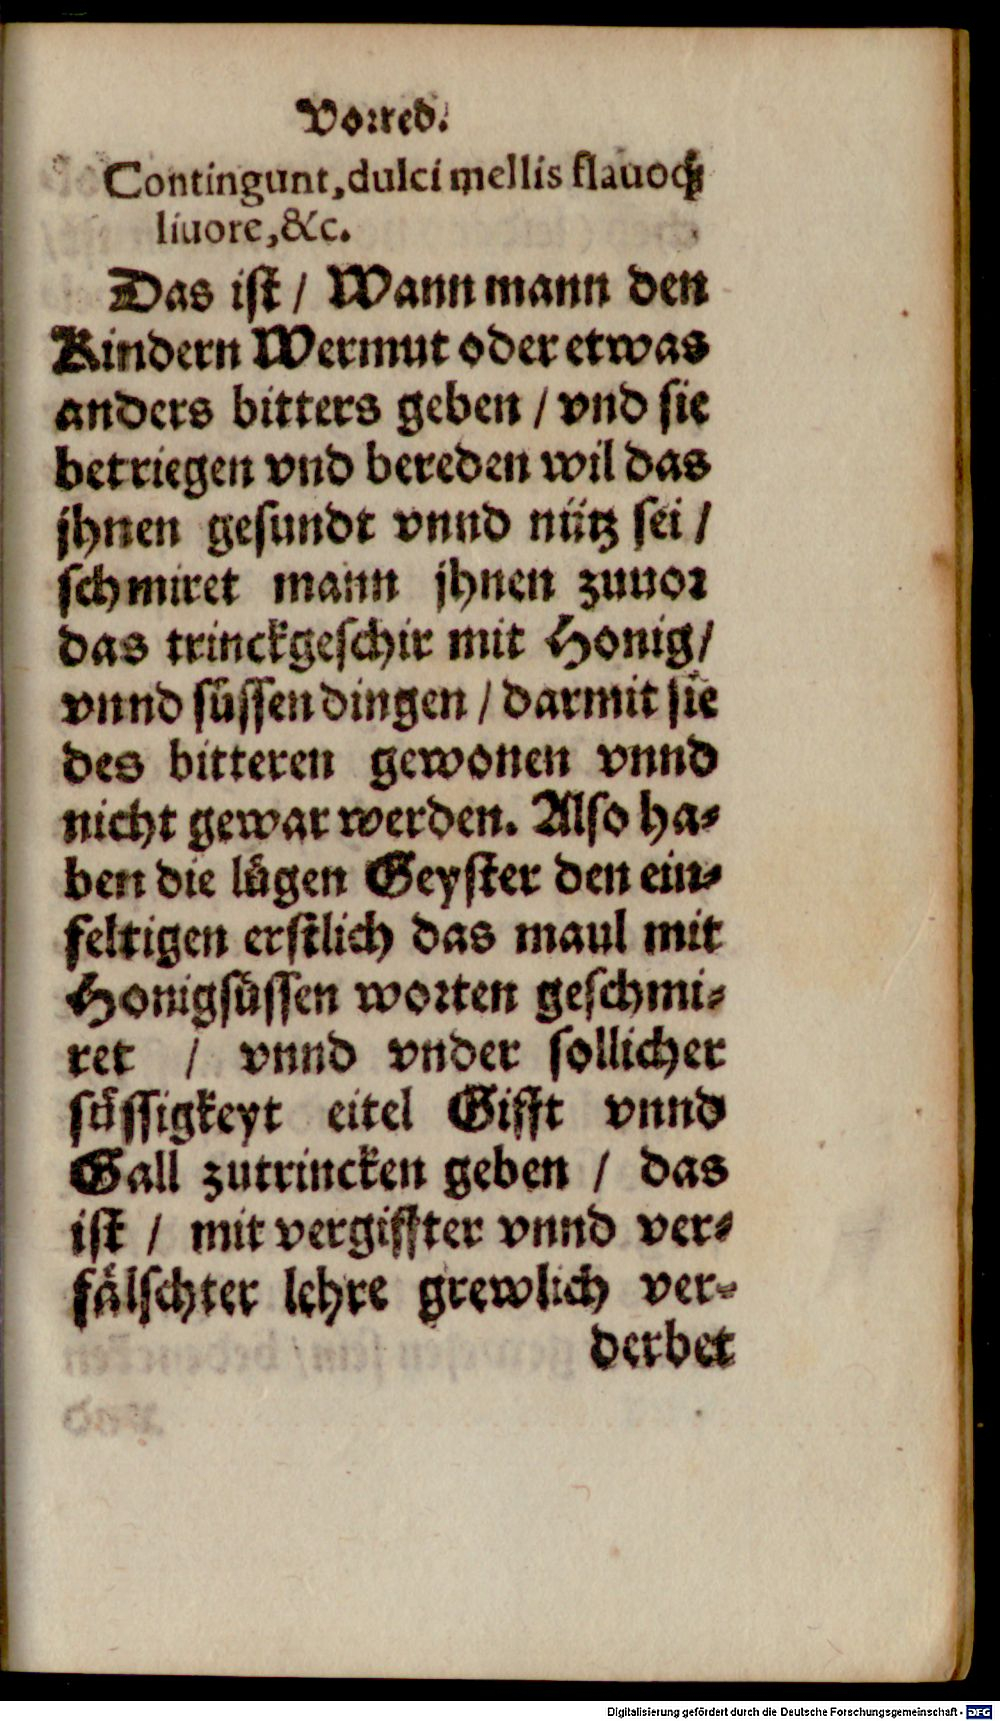 Vorred.
Contingunt, dulci mellis flauoq́;
liuore, &c.
Das ist / Wann mann den
Kindern Wermut oder etwas
anders bitters geben / vnd sie
betriegen vnd bereden wil das
jhnen gesundt vnnd nütz sei /
schmiret mann jhnen zuuor
das trinckgeschir mit Honig /
vnnd süssen dingen / darmit sie
des bitteren gewonen vnnd
nicht gewar werden. Also ha-
ben die lügen Geyster den ein-
feltigen erstlich das maul mit
Honigsüssen worten geschmi-
ret / vnnd vnder sollicher
süssigkeyt eitel Gifft vnnd
Gall zutrincken geben / das
ist / mit vergiffter vnnd ver-
fälschter lehre grewlich ver-
derbet
Digitalisierung gefördert durch die Deutsche Forschungsgemeinschaft - DFG